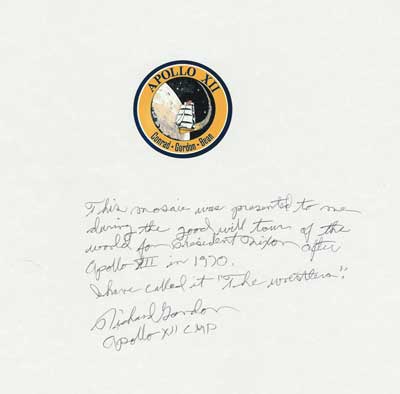 APOLLO XII
Conrad • Gordon • Bean
This mosaic was presented to me
during the good will tour of the
world for President Nixon after
Apollo XII in 1970.
I have called it "The wrestlers".
Richard Gordon
Apollo XII CMP